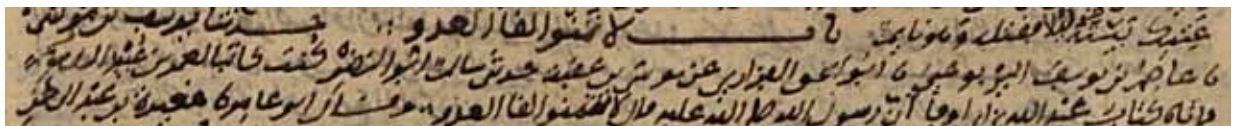 عندي بيتته لا تفعله ومونايت باب لا تمنوا لقا العدو حدثنا يوسف بن موسى
نا عاصم بن يوسف اليربوعي نا ابو اسحق الفزاري عن موسى بن عقبه حدثني سالم ابو النضر كنت كاتبا لعمر بن عبيد الله
فاتاه كتاب عبد الله بن ابي اوفى ان رسول الله صلى الله عليه قال لا تمنوا لقا العدو وقال ابو عامر نا مغيره بن عبد الرحمن